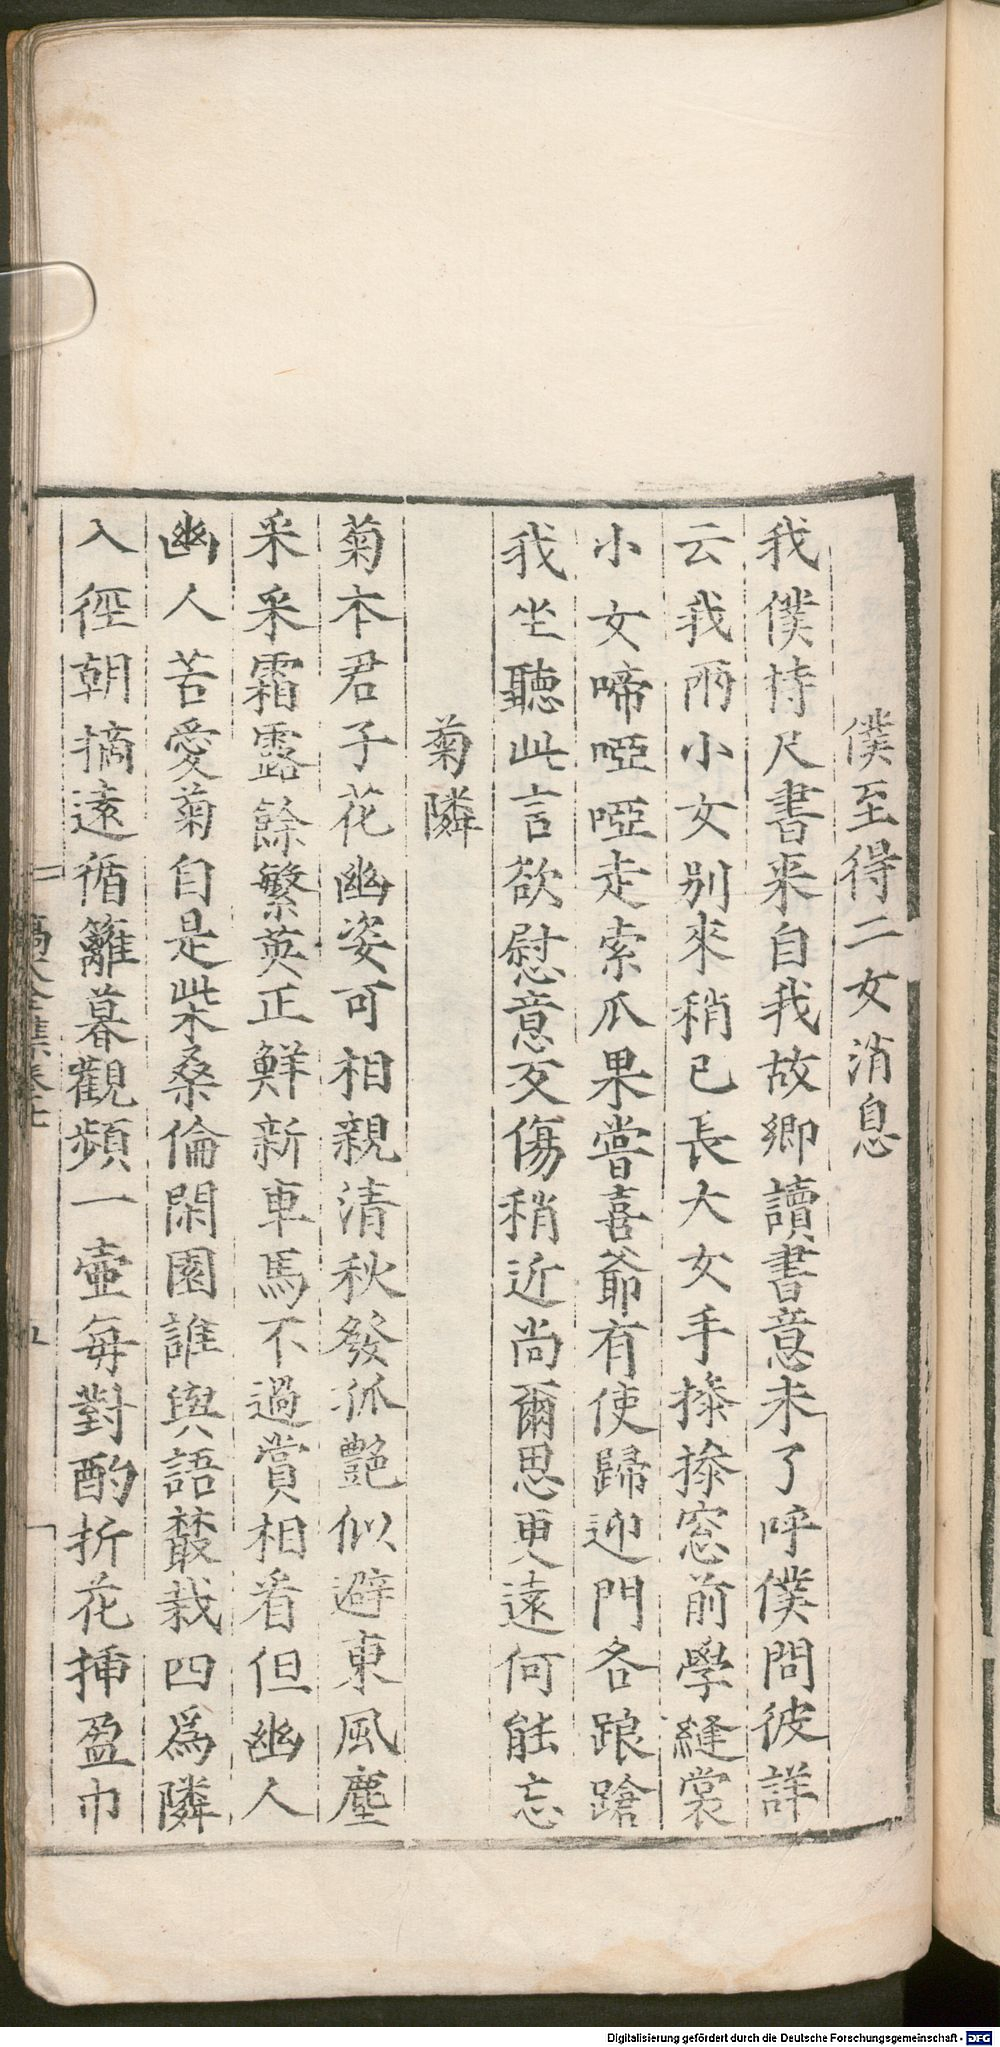 僕至得二女消息
我僕持尺書来自我故鄉讀書意未了呼僕問彼詳
云我兩小女别來稍已長大女手摻摻窓前學縫裳
小女啼啞啞走索瓜果嘗喜爺有使歸迎門各踉蹌
我坐聽此言欲慰意交傷稍近尚爾思更遠何能忘
菊隣
菊本君子花幽姿可相親清秋發孤艶似避東風塵
采采霜露餘繁英正鮮新車馬不過賞相看但幽人
幽人苦愛菊自是柴桑倫閑園誰與語叢栽四為隣
入徑朝摘遠循籬暮觀頻一壷每對酌折花挿盈巾
Digitalisierung gefördert durch die Deutsche Forschungsgemeinschaft - DFG